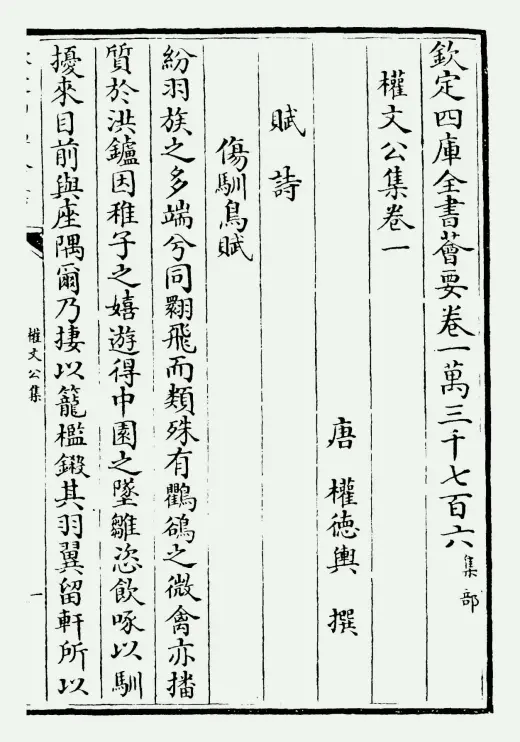 欽定四庫全書薈要卷一萬三千七百六集部
權文公集卷一
唐 權德輿 撰
賦 詩
傷馴鳥賦
紛羽族之多端兮同翾飛而類殊有鸜鵒之微禽亦播
質於洪鑪因稚子之嬉遊得中園之墜雛恣飲啄以馴
擾來目前與座隅爾乃捿以籠檻鎩其羽翼留軒所以
權文公集
一